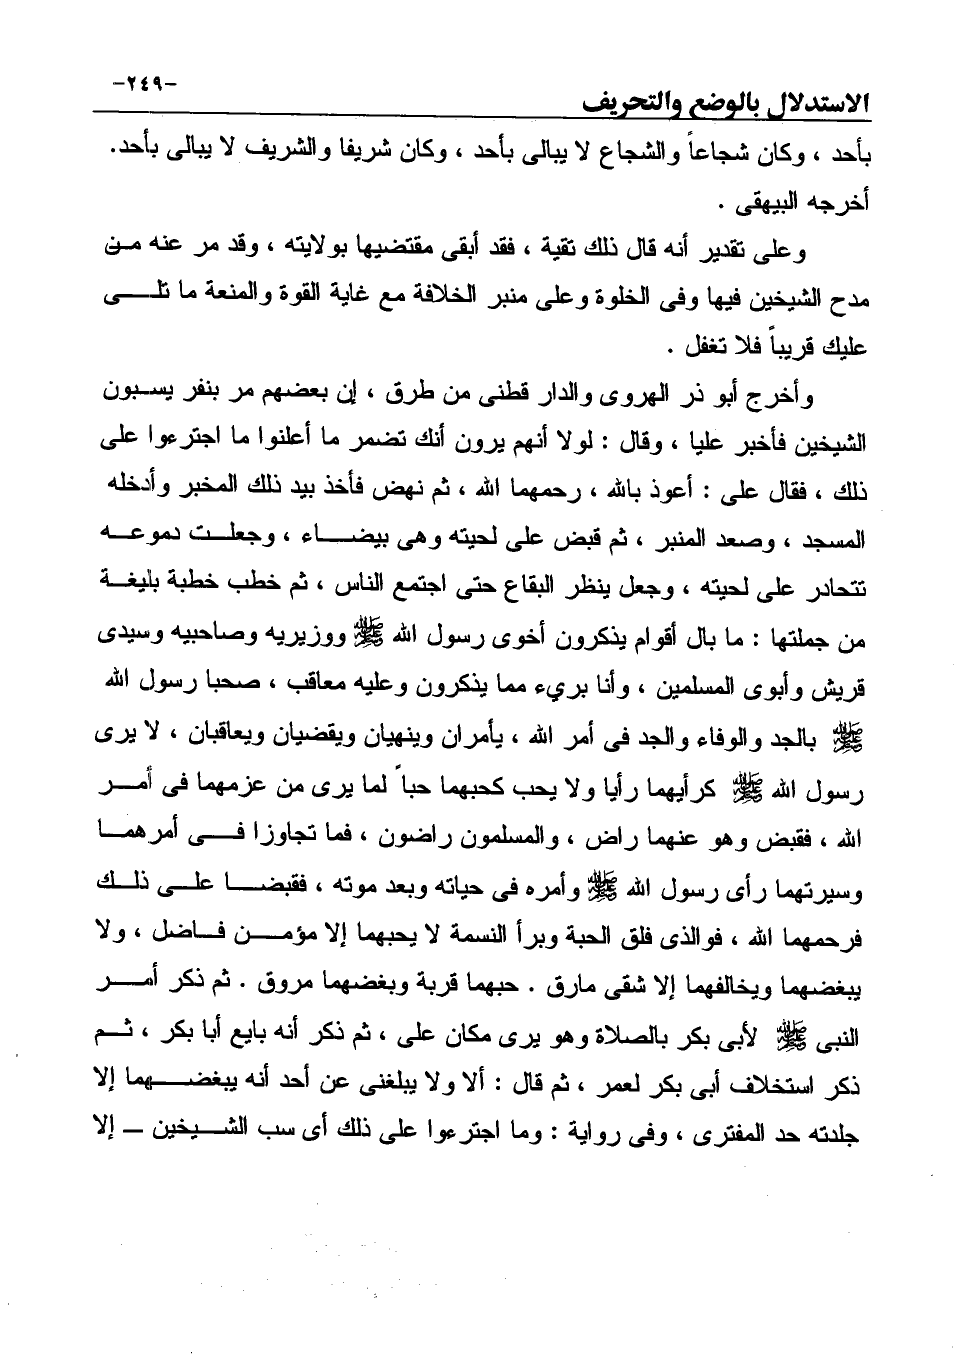 -٢٤٩-
الاستدلال بالوضع والتحريف
بأحد ، وكان شجاعاً والشجاع لا يبالى بأحد ، وكان شريفا والشريف لا يبالى بأحد.
أخرجه البيهقى .
وعلى تقدير أنه قال ذلك تقية ، فقد أبقى مقتضيها بولايته ، وقد مر عنه مـن
مدح الشيخين فيها وفى الخلوة وعلى منبر الخلافة مع غاية القوة والمنعة ما تلـــى
عليك قريباً فلا تغفل .
وأخرج أبو ذر الهروى والدار قطنى من طرق ، إن بعضهم مر بنفر يسـبون
الشيخين فأخبر عليا ، وقال : لولا أنهم يرون أنك تضمر ما أعلنوا ما اجترءوا على
ذلك ، فقال على : أعوذ بالله ، رحمهما الله ، ثم نهض فأخذ بيد ذلك المخبر وأدخله
المسجد ، وصعد المنبر ، ثم قبض على لحيته وهى بيضـــاء ، وجعلـت دموعـه
تتحادر على لحيته ، وجعل ينظر البقاع حتى اجتمع الناس ، ثم خطب خطبة بليغـة
من جملتها : ما بال أقوام يذكرون أخوى رسول الله ﷺ ووزيريه وصاحبيه وسيدى
قريش وأبوى المسلمين ، وأنا بريء مما يذكرون وعليه معاقب ، صحبا رسول الله
ﷺ بالجد والوفاء والجد فى أمر الله ، يأمران وينهيان ويقضيان ويعاقبان ، لا يرى
رسول الله ﷺ كرأيهما رأيا ولا يحب كحبهما حباً لما يرى من عزمهما فى أمـر
الله ، فقبض وهو عنهما راض ، والمسلمون راضون ، فما تجاوزا فــى أمرهمـا
وسيرتهما رأى رسول الله ﷺ وأمره فى حياته وبعد موته ، فقبضــا علـى ذلـك
فرحمهما الله ، فوالذى فلق الحبة وبرأ النسمة لا يحبهما إلا مؤمـــن فـاضل ، ولا
يبغضهما ويخالفهما إلا شقى مارق . حبهما قربة وبغضهما مروق . ثم ذكر أمــر
النبى ﷺ لأبى بكر بالصلاة وهو يرى مكان على ، ثم ذكر أنه بايع أبا بكر ، ثــم
ذكر استخلاف أبى بكر لعمر ، ثم قال : ألا ولا يبلغنى عن أحد أنه يبغضــهما إلا
جلدته حد المفترى ، وفى رواية : وما اجترءوا على ذلك أى سب الشــيخين ــ إلا